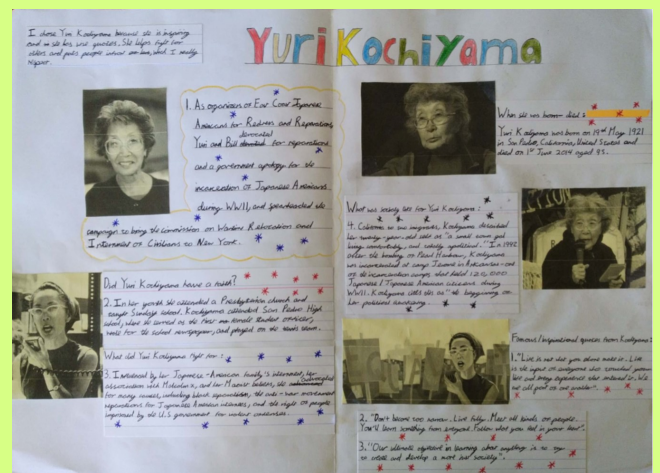 I chose Yuri Kochiyama because she is inspiring
and she has wise quotes. She helps fight for
others and puts people in
YuriKochiyama
1. As organizers of East Coast Japanese
Americans for Redress and Reparations,
Yuri and Bill advocated for reparations
and a government apology for the
incarceration of Japanese Americans
during WWII, and spearheaded the
campaign to bring the Commission on Wartime Relocation and
Internment of Civilians to New York.
When she was born died:
Yuri Kochiyama was born on 19th May 1921
in San Pedro, California, United States and
died on 1st June 2014 aged 93.
What was society like for Yuri Kochiyama:
4. California Kochiyama described
her twenty-year-old self as "a small town gal
living comfortably, and totally apolitical." In 1942
after the bombing on Pearl Harbour, Kochiyama
was incarcerated at camp Jerome in Arkansas - one
of the incarceration camps that held 120,000
Japanese / Japanese American citizens during
WWII. Kochiyama calls this as "the beginning on
her political awakening.
Did Yuri Kochiyama have a faith?
2. In her youth she attended a Presbyterian church and
taught Sunday school. Kochiyama attended San Pedro High
school, where she served as the first female student officer,
wrote for the school newspaper, and played on the tennis team.
What did Yuri Kochiyama fight for:
3. Influenced by her Japanese-American family's internment, her
association with Malcolm x, and her Maoist beliefs, she advocated
for many causes, including black separatism, the anti-war movement
reparations for Japanese American internees, and the rights of people
imprisoned by the U.S government for violent offenses.
Famous/inspirational quotes from Kochiyama:
1. "Life is not what you alone make it. Life
is the input of everyone who touched your
life and every experience that entered it. We
are all part of one another".
2. "Don't become too narrow. Live fully. Meet all kinds of people.
You'll learn something from everyone. Follow what you feel in your heart".
3. "Our ultimate objective in learning about anything is to try
to create and develop a more just society".